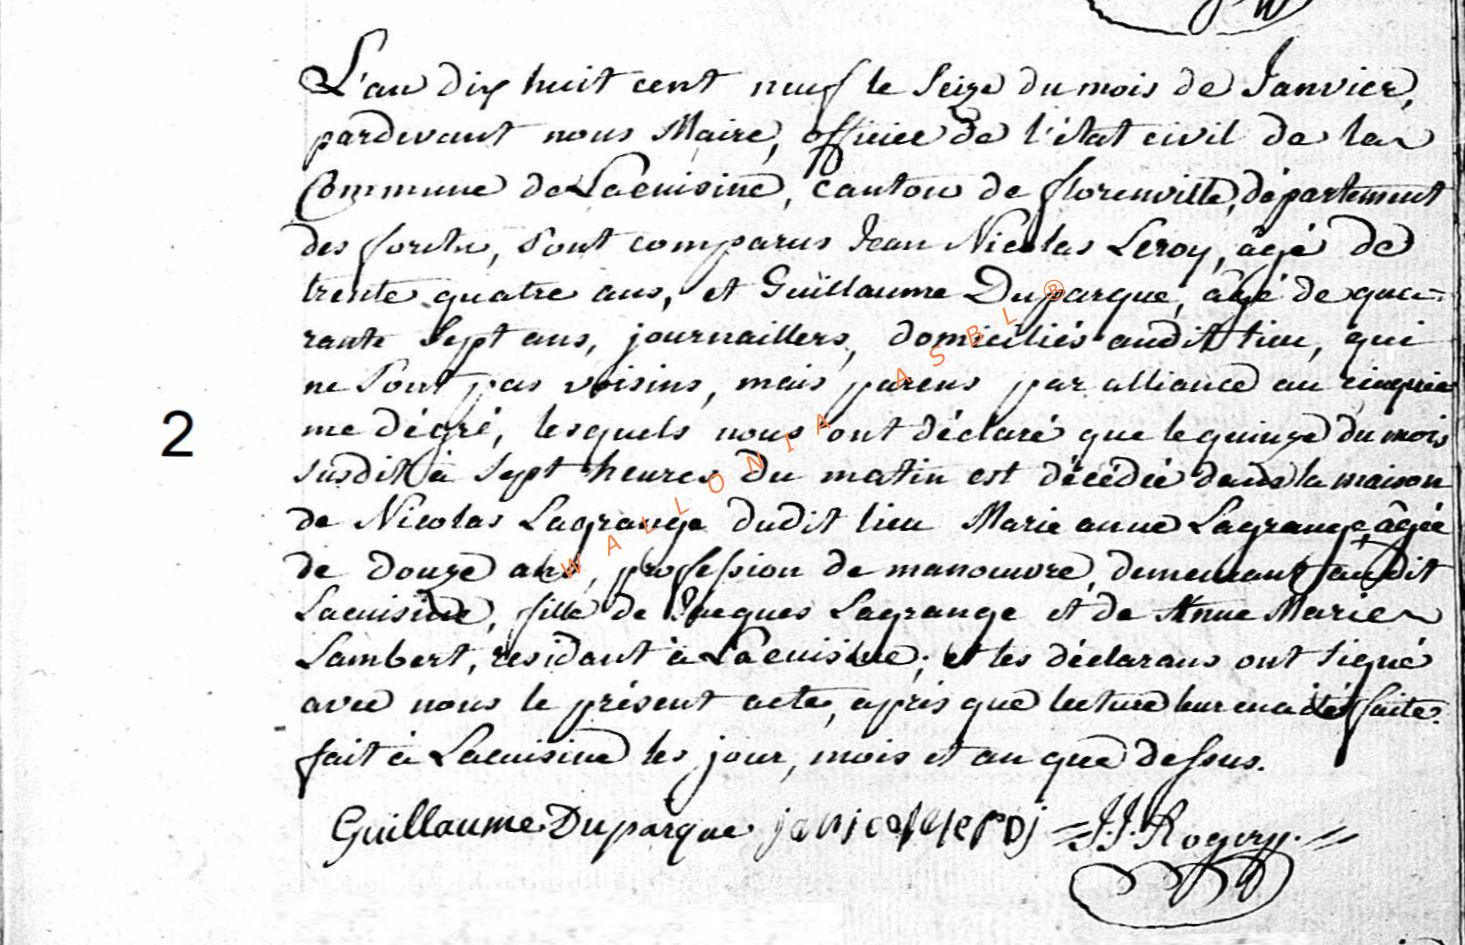 L'an dix huit cent neuf le seize du mois de Janvier,
pardevant nous Maire, officier de l'état civil de la
Commune de Lacuisine, canton de florenville, département
des forêts, sont comparus Jean Nicolas Leroy, âgé de
trente quatre ans, et Guillaume Duparque, âgé de qua=
rante sept ans, journaillers, domiciliés audit lieu, qui
ne sont pas voisins, mais parens par alliance au cinquie
me dégré, lesquels nous ont déclaré que le quinze du mois
susdit à sept heures du matin est décédée dans la maison
de Nicolas Lagrange dudit lieu Marie anne Lagrange, âgée
2
de douze ans, profession de manoeuvre, demeurant audit
Lacuisine, fille de Jacques Lagrange et de Anne Marie
Lambert, residant à Lacuisine; et les déclarans ont signé
avec nous le présent acte, après que lecture leur en a été faite.
fait à Lacuisine les jour, mois et an que dessus.
Guillaume Duparque janicolas leroj =J.J. Rogery.=
WALLONIA ASBL ®